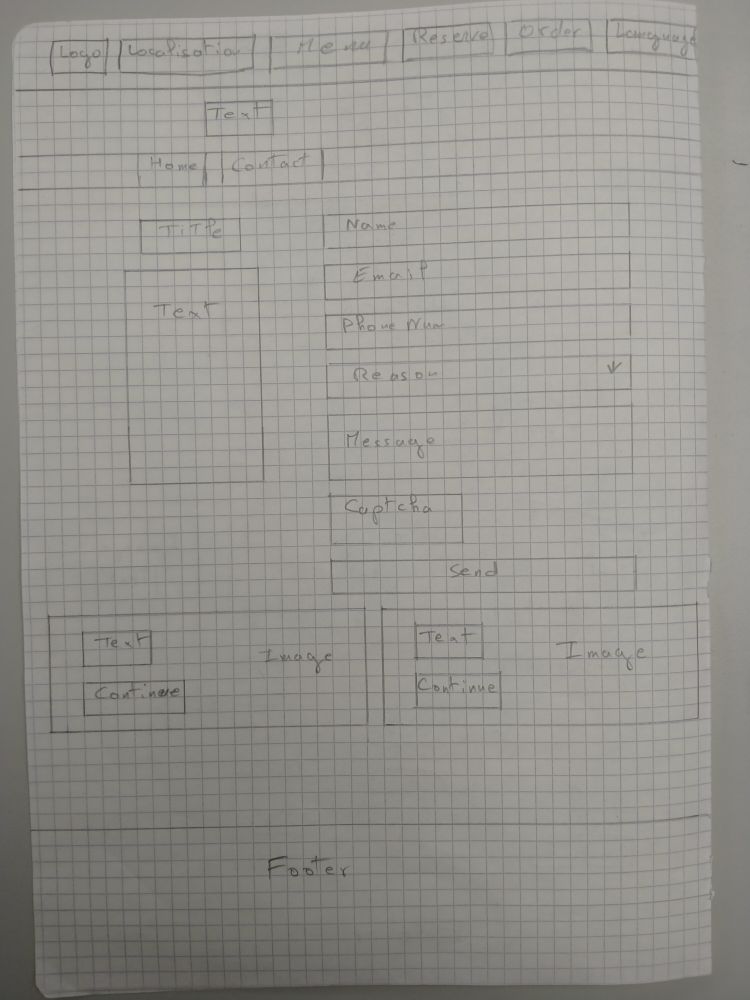 Logo Localisation Menu Reserve Order Language
Text
Home Contact
Title
Name
Email
Text
Phone Num
Reason
Message
Captcha
Send
Text
Image
Continue
Text
Image
Continue
Footer